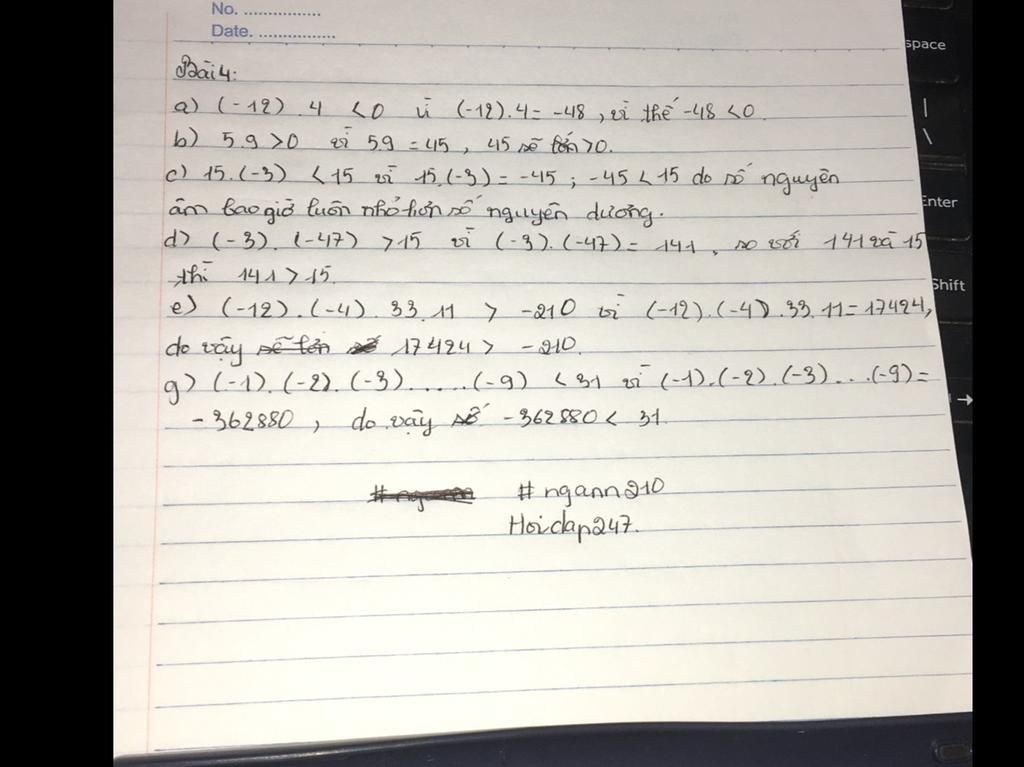 No. ................
Date. ................
Bài 4:
a) (-12) . 4 < 0 vì (-12).4 = -48 , vì thế -48 < 0.
b) 5.9 > 0 vì 5.9 = 45 , 45 sẽ lớn > 0.
c) 15.(-3) < 15 vì 15.(-3) = -45 ; -45 < 15 do số nguyên
âm bao giờ luôn nhỏ hơn số nguyên dương.
d) (-3) . (-47) > 15 vì (-3).(-47) = 141 , so với 141 và 15
thì 141 > 15.
e) (-12).(-4) . 33.11 > -210 vì (-12).(-4).33.11 = 17424,
do vậy 17424 > -210.
g) (-1).(-2).(-3).....(-9) < 31 vì (-1).(-2).(-3)...(-9) =
-362880 , do vậy -362880 < 31
#ngann210
Hoidap247.
space
|
\
Enter
Shift
→